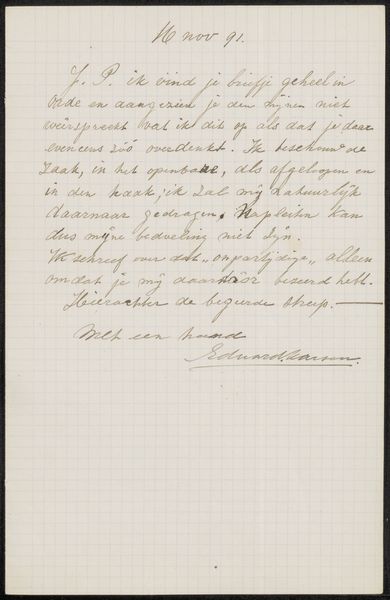 16 nov 91.
J. P. ik vind je briefje geheel in
orde en aangezien je den mijnen niet
weêrspreekt vat ik dit op als dat je daar
eveneens zóó over denkt. Ik beschouw de
zaak, in het openbaar, als afgeloopen en
in den haak; ik zal mij natuurlijk
daarnaar gedragen. Napleiten kan
dus mijne bedoeling niet zijn.
Ik schreef over dat „onpartijdige„ alleen
omdat je mij daardóór bezeerd hebt.
Hierachter de begeerde streep. —
Met een hand
Eduard Karsen.